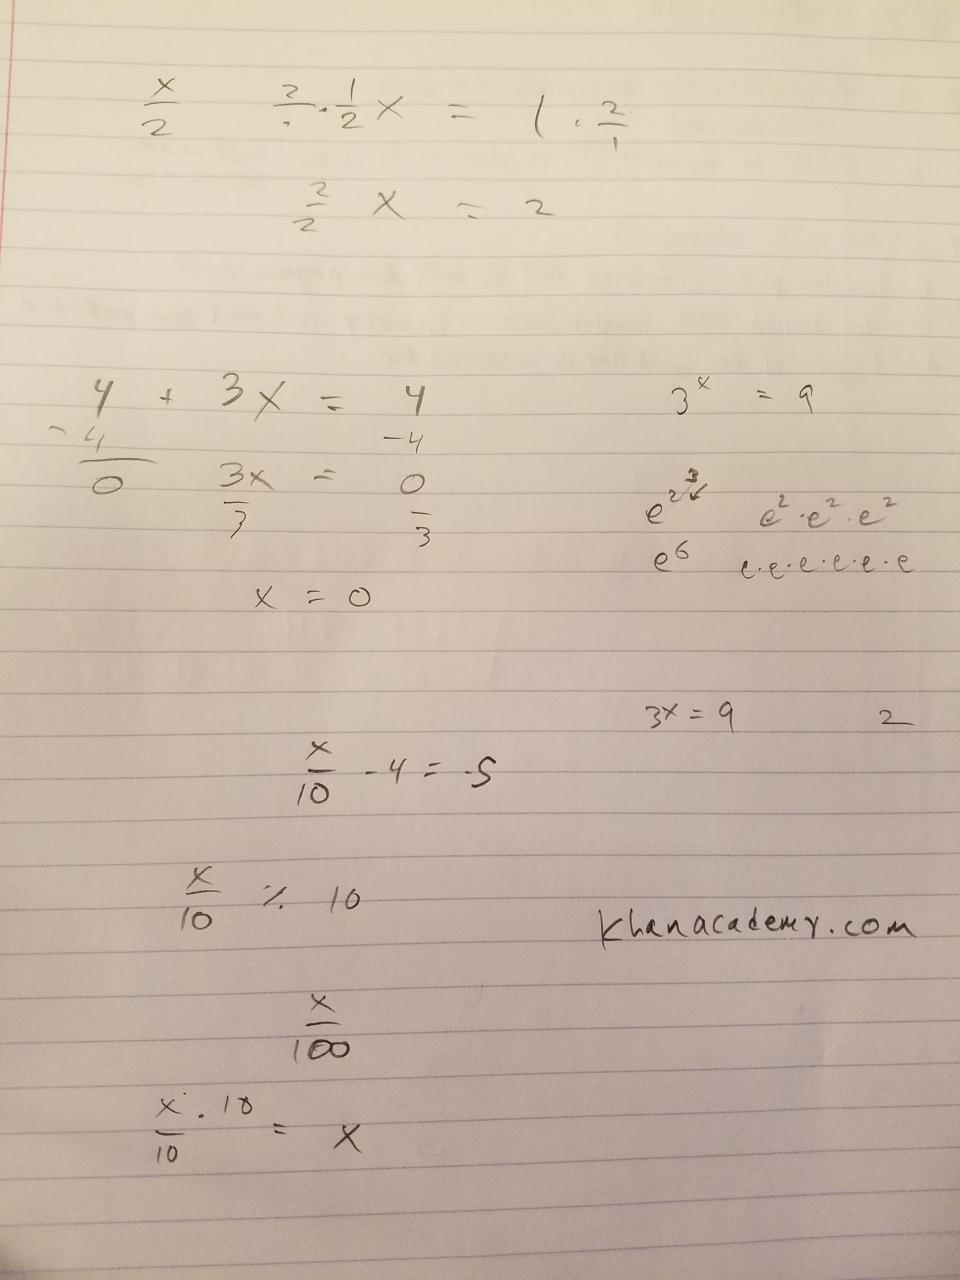 x/2    2/. · 1/2 x = 1 · 2/1
2/2 x = 2
4 + 3x = 4
-4    -4
0    3x/3 = 0/3
x = 0
3^x = 9
e^2^3    e^2 · e^2 · e^2
e^6    e·e·e·e·e·e
3x = 9    2
x/10 - 4 = -5
x/10 ÷ 10
khanacademy.com
x/100
x/10 · 10 = x